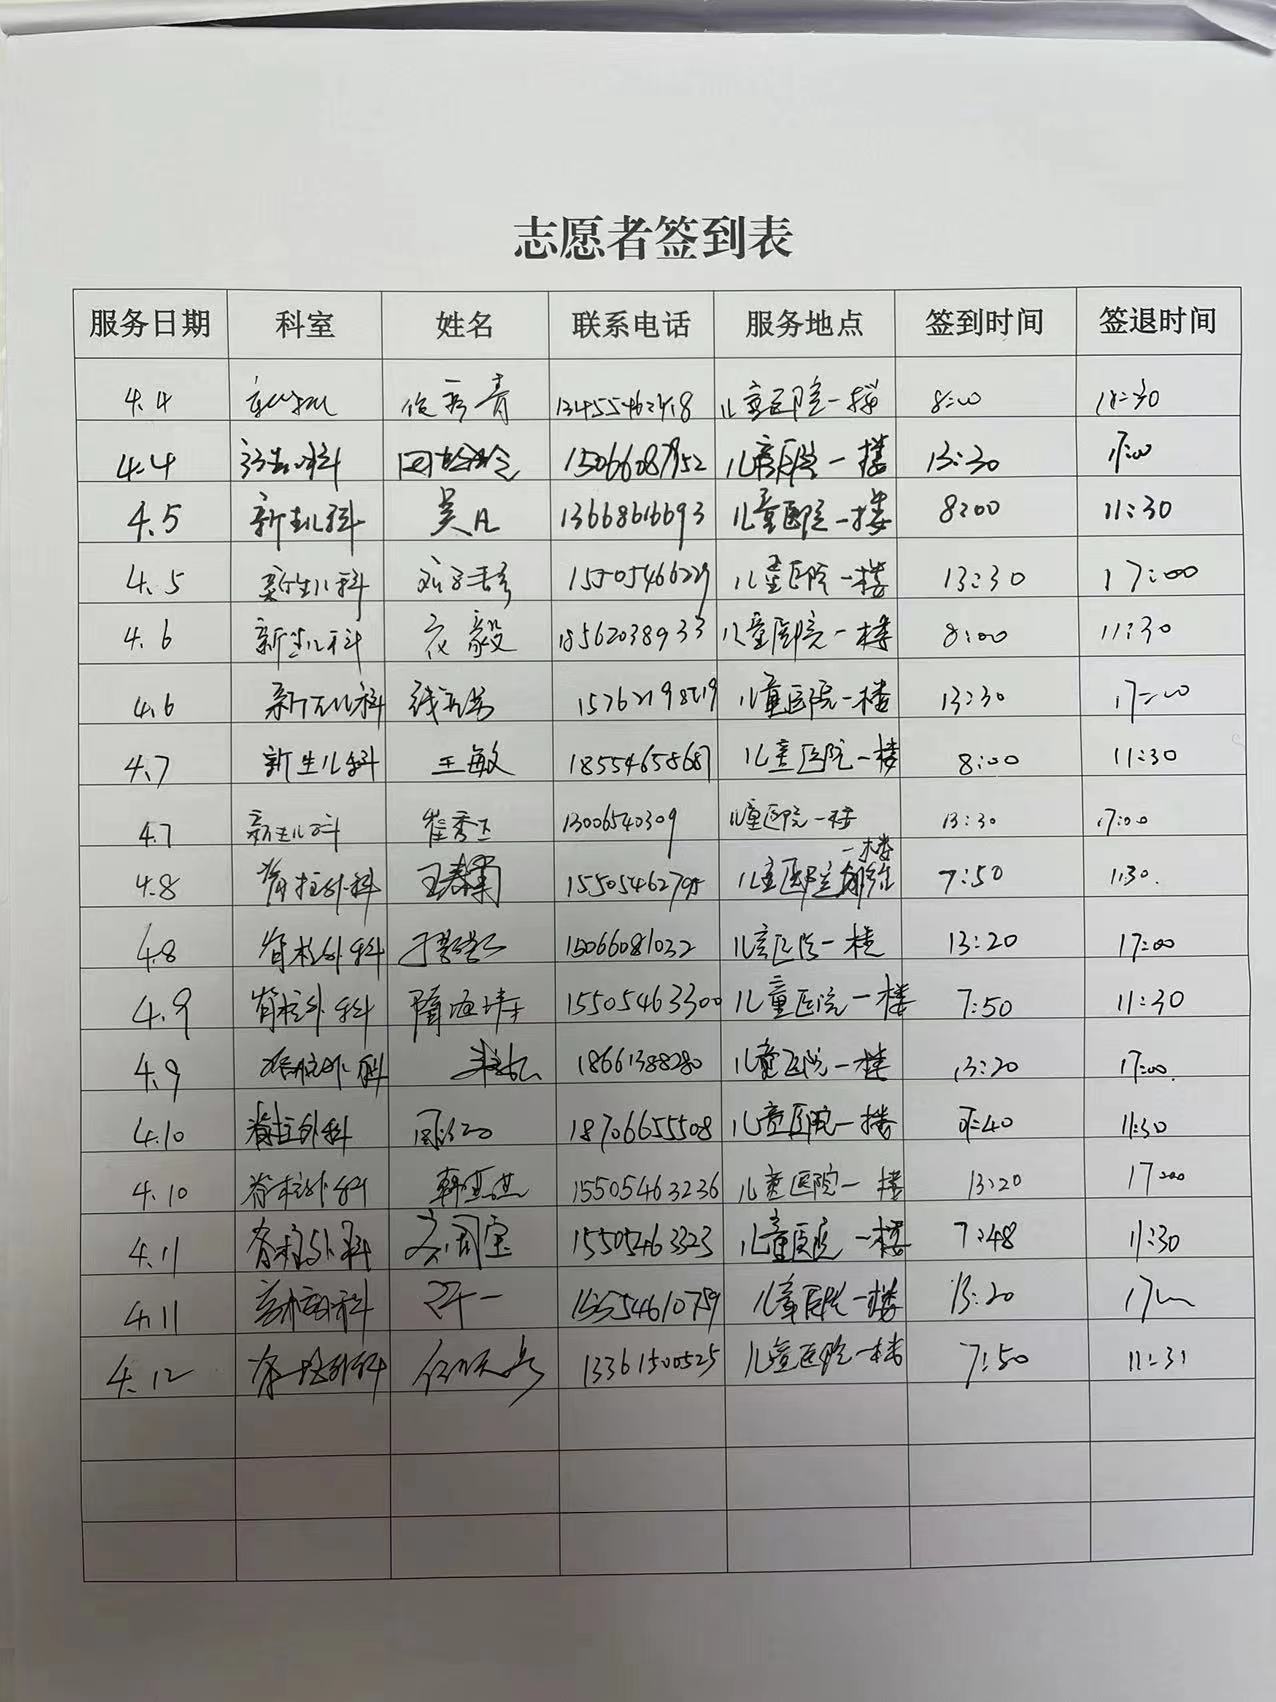 志愿者签到表
服务日期 科室 姓名 联系电话 服务地点 签到时间 签退时间
4.4 儿童医院一楼 8:00 11:30
4.4 儿童医院一楼 13:30 17:00
4.5 新生儿科 吴凡 13668616693 儿童医院一楼 8:00 11:30
4.5 新生儿科 15505466229 儿童医院一楼 13:30 17:00
4.6 新生儿科 衣毅 18562038933 儿童医院一楼 8:00 11:30
4.6 新生儿科 儿童医院一楼 13:30 17:00
4.7 新生儿科 王敏 18554658687 儿童医院一楼 8:00 11:30
4.7 新生儿科 崔秀玉 13006540309 儿童医院一楼 13:30 17:00
4.8 脊柱外科 王春菊 儿童医院 一楼 7:50 11:30.
4.8 脊柱外科 15066081032 儿童医院一楼 13:20 17:00
4.9 脊柱外科 隋海涛 15505463300 儿童医院一楼 7:50 11:30
4.9 脊柱外科 18661388280 儿童医院一楼 13:20 17:00.
4.10 脊柱外科 18706655508 儿童医院一楼 7:40 11:30
4.10 脊柱外科 15505463236 儿童医院一楼 13:20 17:00
4.11 脊柱外科 15505463323 儿童医院一楼 7:48 11:30
4.11 脊柱外科 儿童医院一楼 13:20
4.12 脊柱外科 13361500525 儿童医院一楼 7:50 11:31